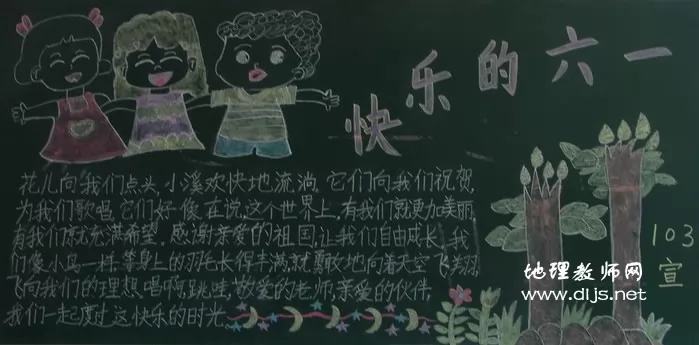 快乐的六一
花儿向我们点头,小溪欢快地流淌,它们向我们祝贺,
为我们歌唱,它们好像在说,这个世界上,有我们就更加美丽,
有我们就充满希望。感谢亲爱的祖国,让我们自由成长,我
们像小鸟一样,等身上的羽毛长得丰满,就勇敢地向着天空飞翔,
飞向我们的理想。唱啊,跳哇,敬爱的老师,亲爱的伙伴,
我们一起度过这快乐的时光。
103
宣
地理教师网
www.dljs.net